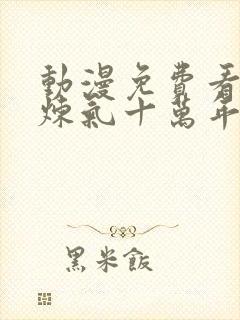 動漫免費看
煉氣十萬年
黑米飯